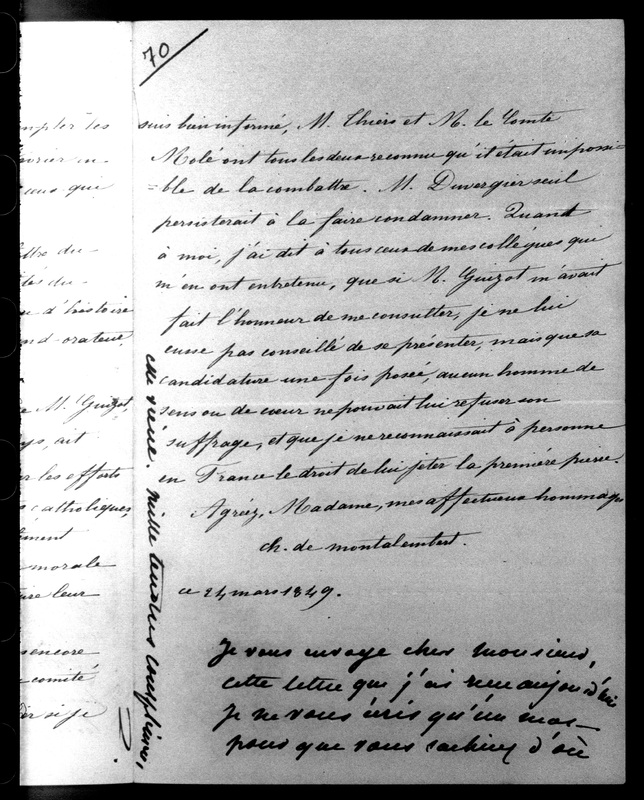 70
suis bien informé, M. Thiers et M. le Comte
Molé ont tous les deux reconnu qu'il était impossi=
=ble de la combattre. M. Duvergier seul
persisterait à la faire condamner. Quant
à moi, j'ai dit à tous ceux de mes collègues qui
m'en ont entretenu, que si M. Guizot m'avait
fait l'honneur de me consulter, je ne lui
eusse pas conseillé de se présenter, mais que sa
candidature une fois posée, aucun homme de
sens ou de cœur ne pouvait lui refuser son
suffrage, et que je ne reconnaissais à personne
en France le droit de lui jeter la première pierre.
Agréez, Madame, mes affectueux hommages
ch. de montalembert.
ce 24 mars 1849.
Je vous envoye cher monsieur,
cette lettre que j'ai reçue aujourd'hui
Je ne vous écris qu'un mot
pour que vous sachiez d'où
elle vient. mille tendres compliments,
D.
mpter les
février
ceux qui
du
d'histoire
orateur
M. Guizot,
ait
les efforts
catholiques
morale
leur
encore
comité
si je